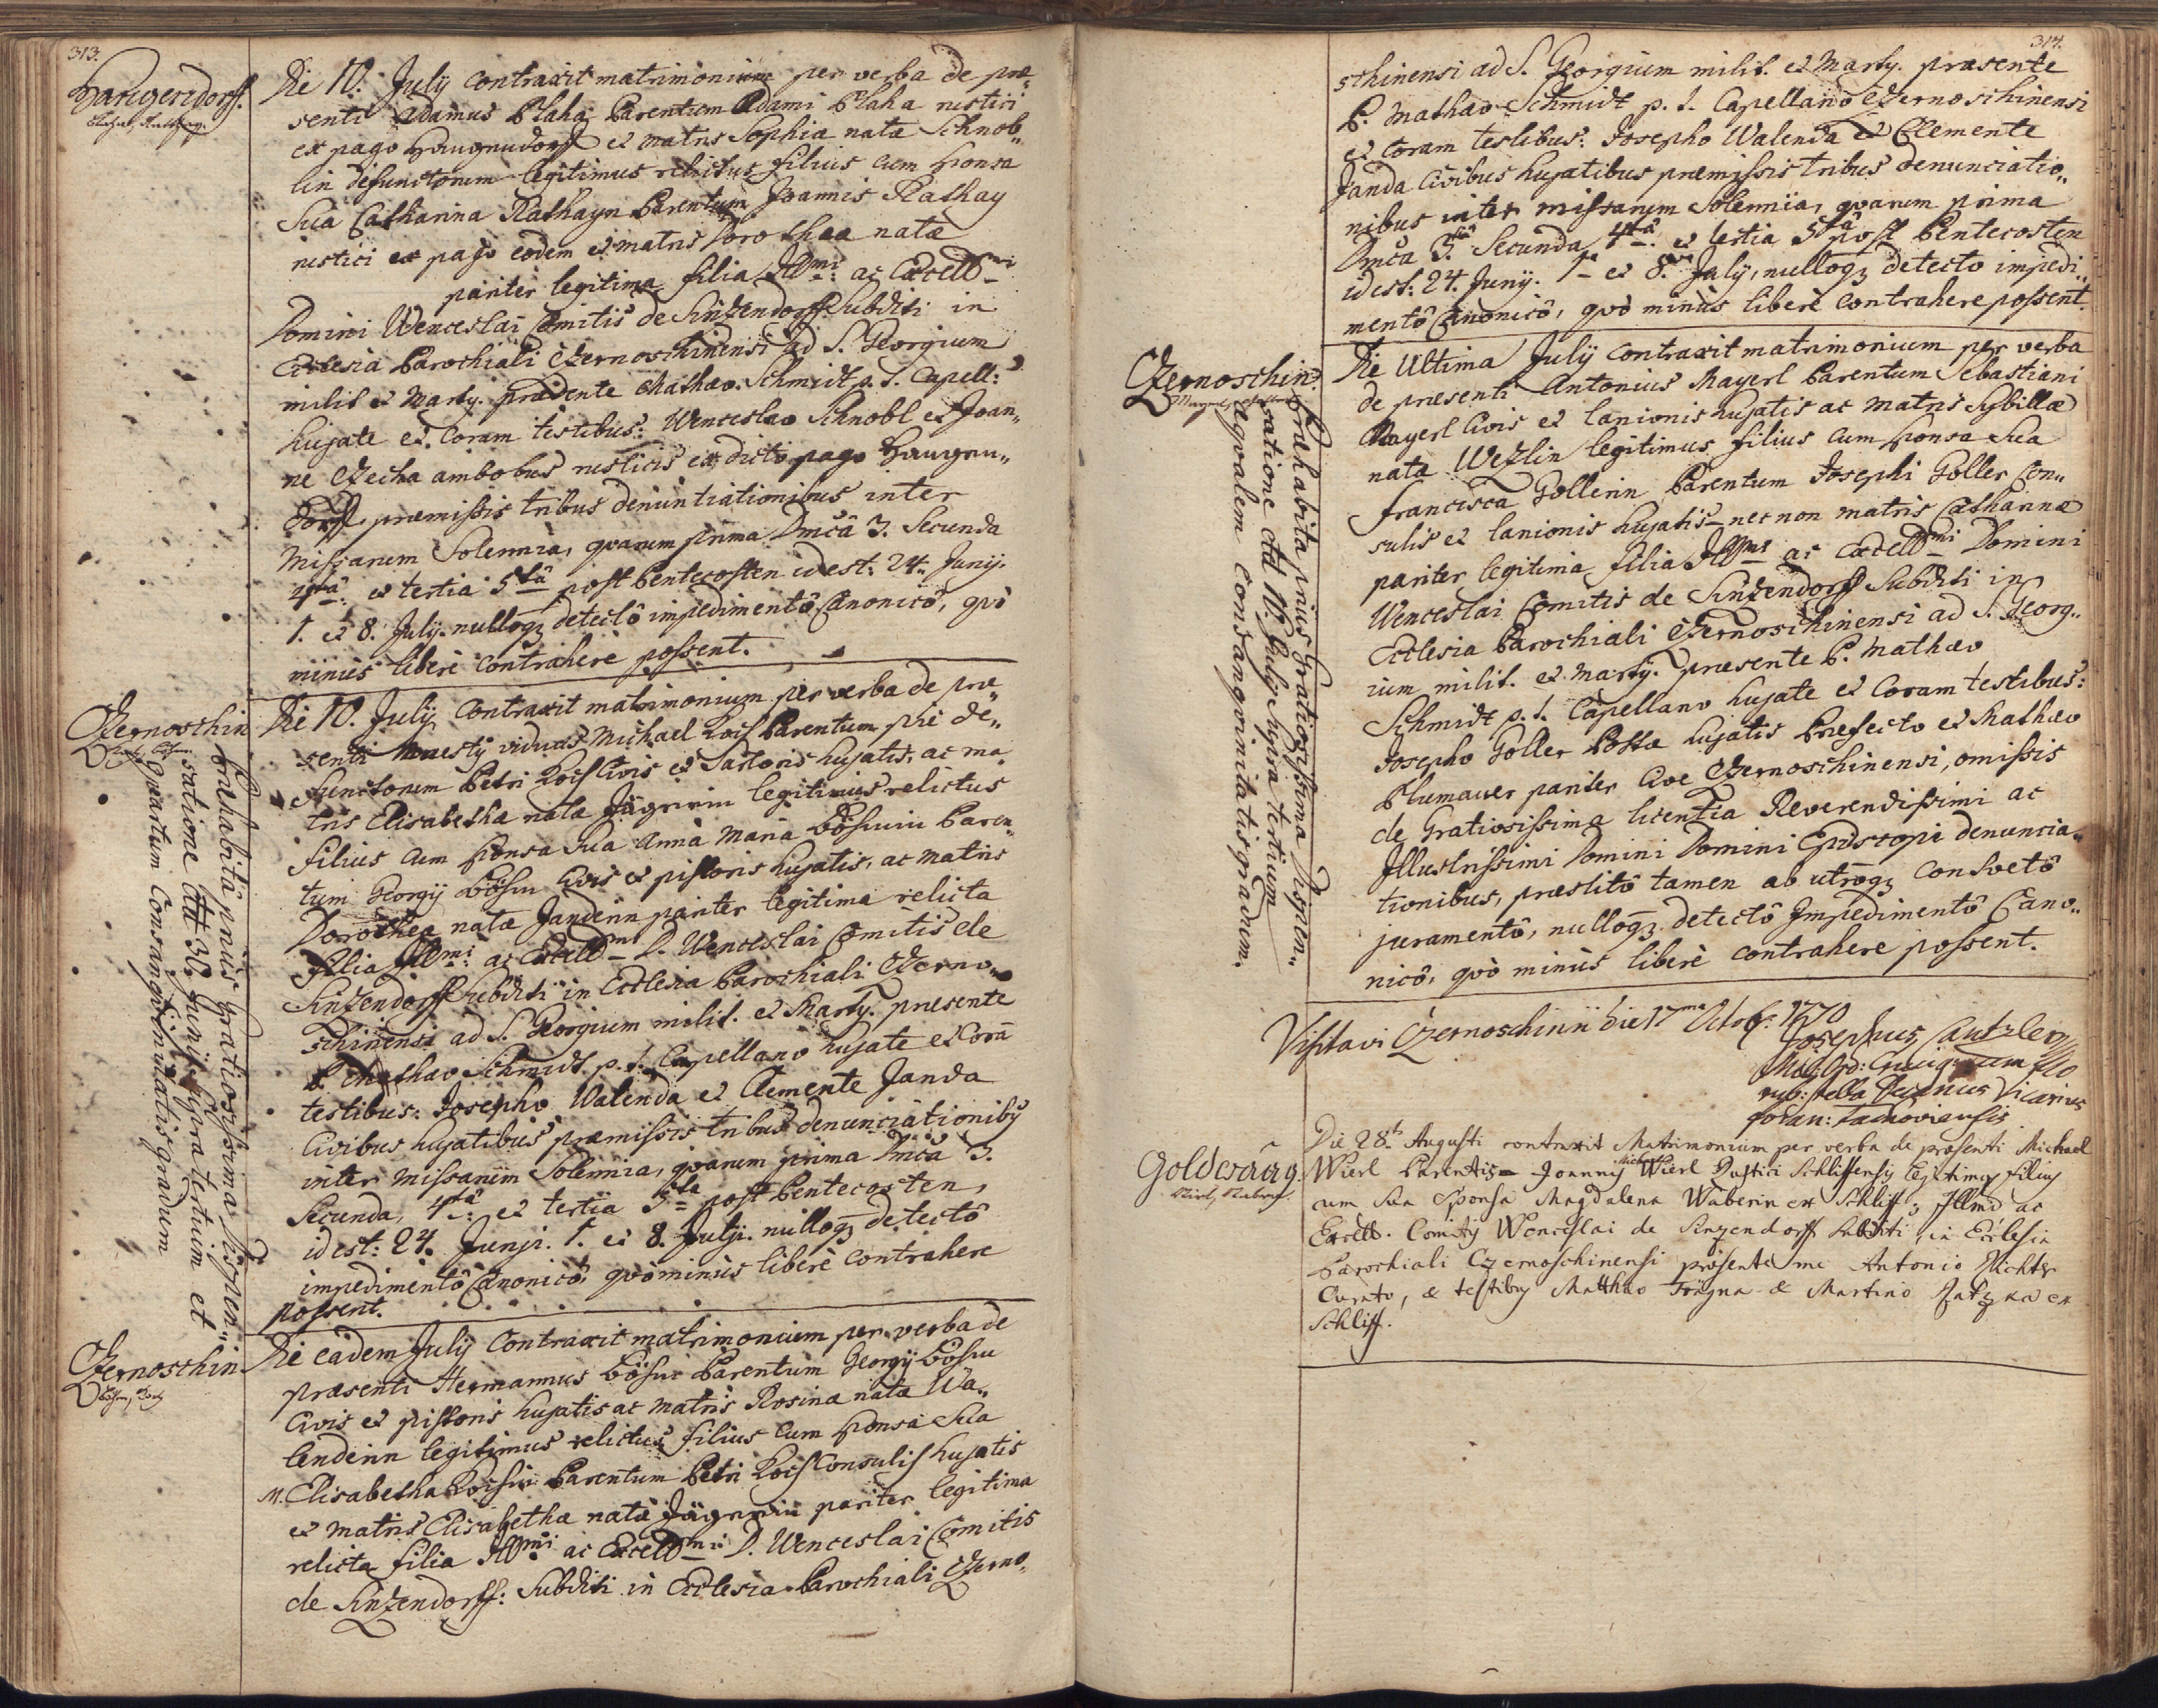 313.
Haugendorf.
Die 10. July contraxit matrimonium per verba de præ„
senti Adamus Blaha Parentum Adami Blaha rustici
ex pago Haugendorff et matris Sophiæ natæ Schnob„
lin defunctorum legitimus relictus filius cum sponsa
sua Catharina Rathayn Parentum Joannis Rathay
rustici ex pago eodem et matris Dorotheæ natæ
pariter legitima filia Illmi: ac Excellmi
Domini Wenceslai Comitis de Sinzendorff Subditi in
Ecclesia Parochiali Czernoschinensi ad S. Georgium
milit et Marty. præsente Mathæo Schmidt p. t. Capell:
hujate et Coram testibus: Wenceslao Schnobl et Joan„
ne Czecha ambobus rusticis ex dicto pago Haugen„
dorff præmissis tribus denuntiationibus inter
Missarum Solemnia, quarum prima Dmcâ 3. Secunda
4tâ: et tertia 5tâ post Pentecosten id est: 24. Junij.
1. et 8. July. nulloq3 detectô impedimentô Canonicô, quò
minùs liberè contrahere possent.
Czernoschin
Præhabitâ priùs Gratiosissima Dispen„
satione ddt 30. Junij supra tertium et
quartum Consanguinitatis gradum
Die 10. July contraxit matrimonium per verba de præ„
senti maestÿ viduus Michael Kois Parentum piè de„
functorum Petri Kois Civis et Sartoris hujatis, ac ma„
tris Elisabethæ natæ Jägerin legitimus relictus
filius cum sponsa sua Anna Maria Böhmin Paren„
tum Georgij Böhm Civis et pistoris hujatis, ac matris
Dorotheæ natæ Janderin pariter legitima relicta
filia Illmi: ac Excellmi D. Wenceslai Comitis de
Sinzendorff Subditi in Ecclesia Parochiali Czerno„
schinensi ad S. Georgium milit. et Marty. præsente
P. Mathæo Schmidt p. t. Capellano hujate et Corā
testibus: Josepho Walenda et Clemente Janda
Civibus hujatibus præmissis tribus denunciationibÿ
inter missarum Solemnia, quarum prima Dmcâ 3.
Secunda, 4tâ: et tertia 5ta post Pentecosten,
id est: 24. Junji. 1. et 8. Julji. nulloq3 detectô
impedimentô Canonicô, quò minùs liberè contrahere
possent.
Czernoschin
Die eadem July contraxit matrimonium per verba de
præsenti Hermannus Böhm Parentum Georgij Böhm
Civis et pistoris hujatis ac matris Rosinæ natæ Wa„
lenderin legitimus relictus filius cum sponsa sua
M. Elisabetha Koisin Parentum Petri Kois Consulis hujatis
et matris Elisabethæ natæ Jägerin pariter legitima
relicta filia Illmi: ac Excellmi D. Wenceslai Comitis
de Sinzendorff: Subditi in Ecclesia Parochiali Czerno„
314.
schinensi ad S. Georgium milit. et Marty. præsente
P. Mathæo Schmidt p. t. Capellano Czernoschinensi
et coram testibus: Josepho Walenda et Clemente
Janda Civibus hujatibus præmissis tribus denunciatio„
nibus inter missarum Solemnia, quarum prima
Dmcâ 3tiâ Secunda 4tâ: et tertia 5tâ post Pentecosten
id est: 24. Junij. 1a et 8va July, nulloq3 detecto impedi„
mentô Canonicô, quò minùs liberè contrahere possent.
Czernoschin.
Præhabita priùs Gratiosissima Dispen„
satione ddt 10. Julij supra tertium
æqualem consanguinitatis gradum.
Die Ultima July contraxit matrimonium per verba
de præsenti Antonius Mayerl Parentum Sebastiani
Mayerl Civis et lanionis hujatis ac matris Sybillæ
natæ Wezlin legitimus filius cum sponsa sua
Francisca Gollerin Parentum Josephi Goller Con„
sulis et lanionis hujatis nec non matris Catharinæ
pariter legitima filia Illmi ac Excellmi Domini
Wenceslai Comitis de Sinzendorff Subditi in
Ecclesia Parochiali Czernoschinensi ad S. Georg„
ium milit. et Marty. præsente P. Mathæo
Schmidt p. t. Capellano hujate et Coram testibus:
Josepho Goller Postæ hujatis Præfecto et Mathæo
Blumauer pariter Cive Czernoschinensi, omissis
de Gratiosissima licentia Reverendissimi ac
Illustrissimi Domini Domini Episcopi denuncia„
tionibus, præstitô tamen ab utroq3 Consvetô
juramentô, nulloq3 detectô Impedimentô Cano„
nicô, quò minùs liberè contrahere possent.
Visitavi Czernoschinii die 17ma 1770
Josephus
Ord: Crucig
rub: stella Vicarius
foran: Tachoviensis
Goldwaag.
Die 28. Augusti contraxit Matrimonium per verba de præsenti Michael
Wierl Parentis Joannis Wierl Rustici Schliffensÿ legitimÿ filiÿ
cum sua Sponsa Magdalena Waberin ex Schliff, Illmi ac
Excell. Comitÿ Wenceslai de Sinzendorff subditi, in Ecclesia
Parochiali Czernoschinensi præsente me Antonio Richter
Curato, & testibÿ Matthæo Trägna & Martino ex
Schliff.